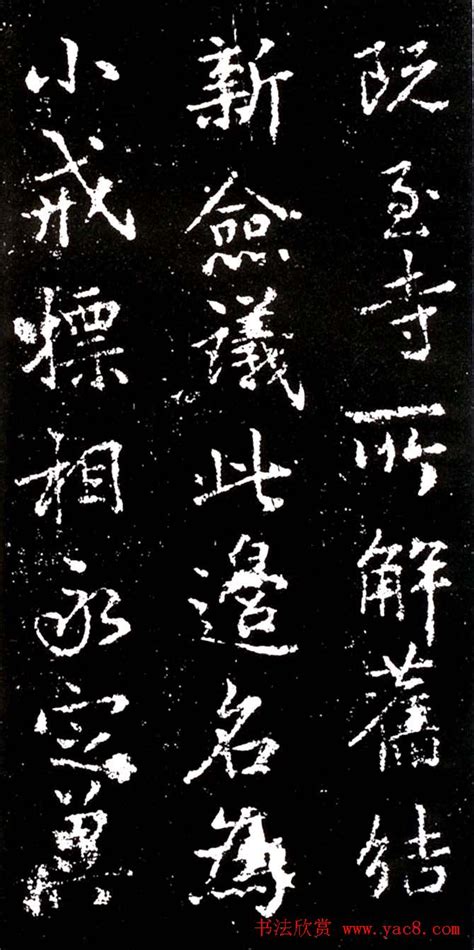 既至寺所解舊結
新僉議此邊名為
小戒標相永定冀
书法欣赏 www.yac8.com